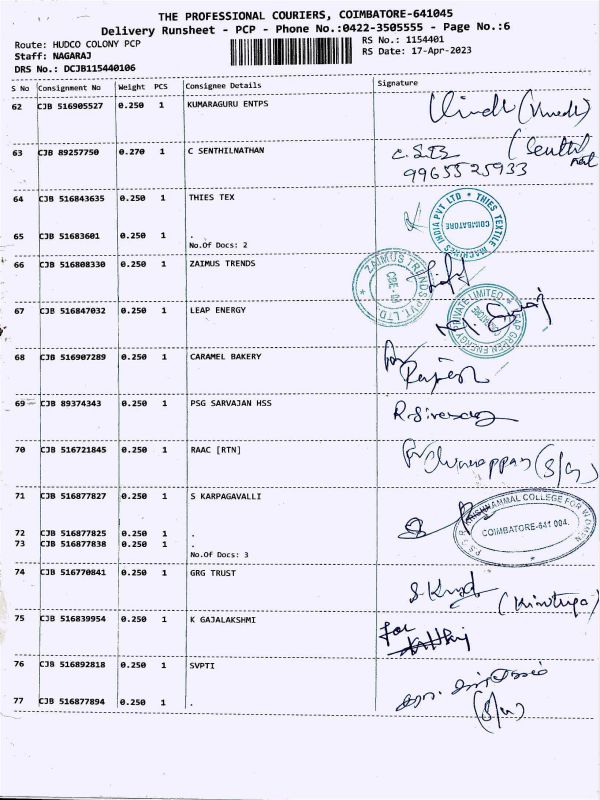 THE PROFESSIONAL COURIERS, COIMBATORE-641045
Delivery Runsheet - PCP - Phone No.:0422-3505555 - Page No.:6
Route: HUDCO COLONY PCP
RS No.: 1154401
Staff: NAGARAJ
RS Date: 17-Apr-2023
DRS No.: DCJB115440106
S No Consignment No Weight PCS Consignee Details Signature
62 CJB 516905527 0.250 1 KUMARAGURU ENTPS
63 CJB 89257750 0.270 1 C SENTHILNATHAN
9965525933
64 CJB 516843635 0.250 1 THIES TEX
THIES TEXTILE MACHINES INDIA PVT LTD * COIMBATORE
65 CJB 51683601 0.250 1 .
No.Of Docs: 2
66 CJB 516808330 0.250 1 ZAIMUS TRENDS
ZAIMUS TRENDS PVT. LTD. *
67 CJB 516847032 0.250 1 LEAP ENERGY
LEAP GREEN ENERGY PRIVATE LIMITED
68 CJB 516907289 0.250 1 CARAMEL BAKERY
for
Rajesh
69 CJB 89374343 0.250 1 PSG SARVAJAN HSS
70 CJB 516721845 0.250 1 RAAC [RTN]
(S/G)
71 CJB 516877827 0.250 1 S KARPAGAVALLI
KRISHNAMMAL COLLEGE FOR WOMEN
COIMBATORE-641 004.
72 CJB 516877825 0.250 1 .
73 CJB 516877838 0.250 1 .
No.Of Docs: 3
74 CJB 516770841 0.250 1 GRG TRUST
75 CJB 516839954 0.250 1 K GAJALAKSHMI
for
76 CJB 516892818 0.250 1 SVPTI
77 CJB 516877894 0.250 1 .
(S/G)